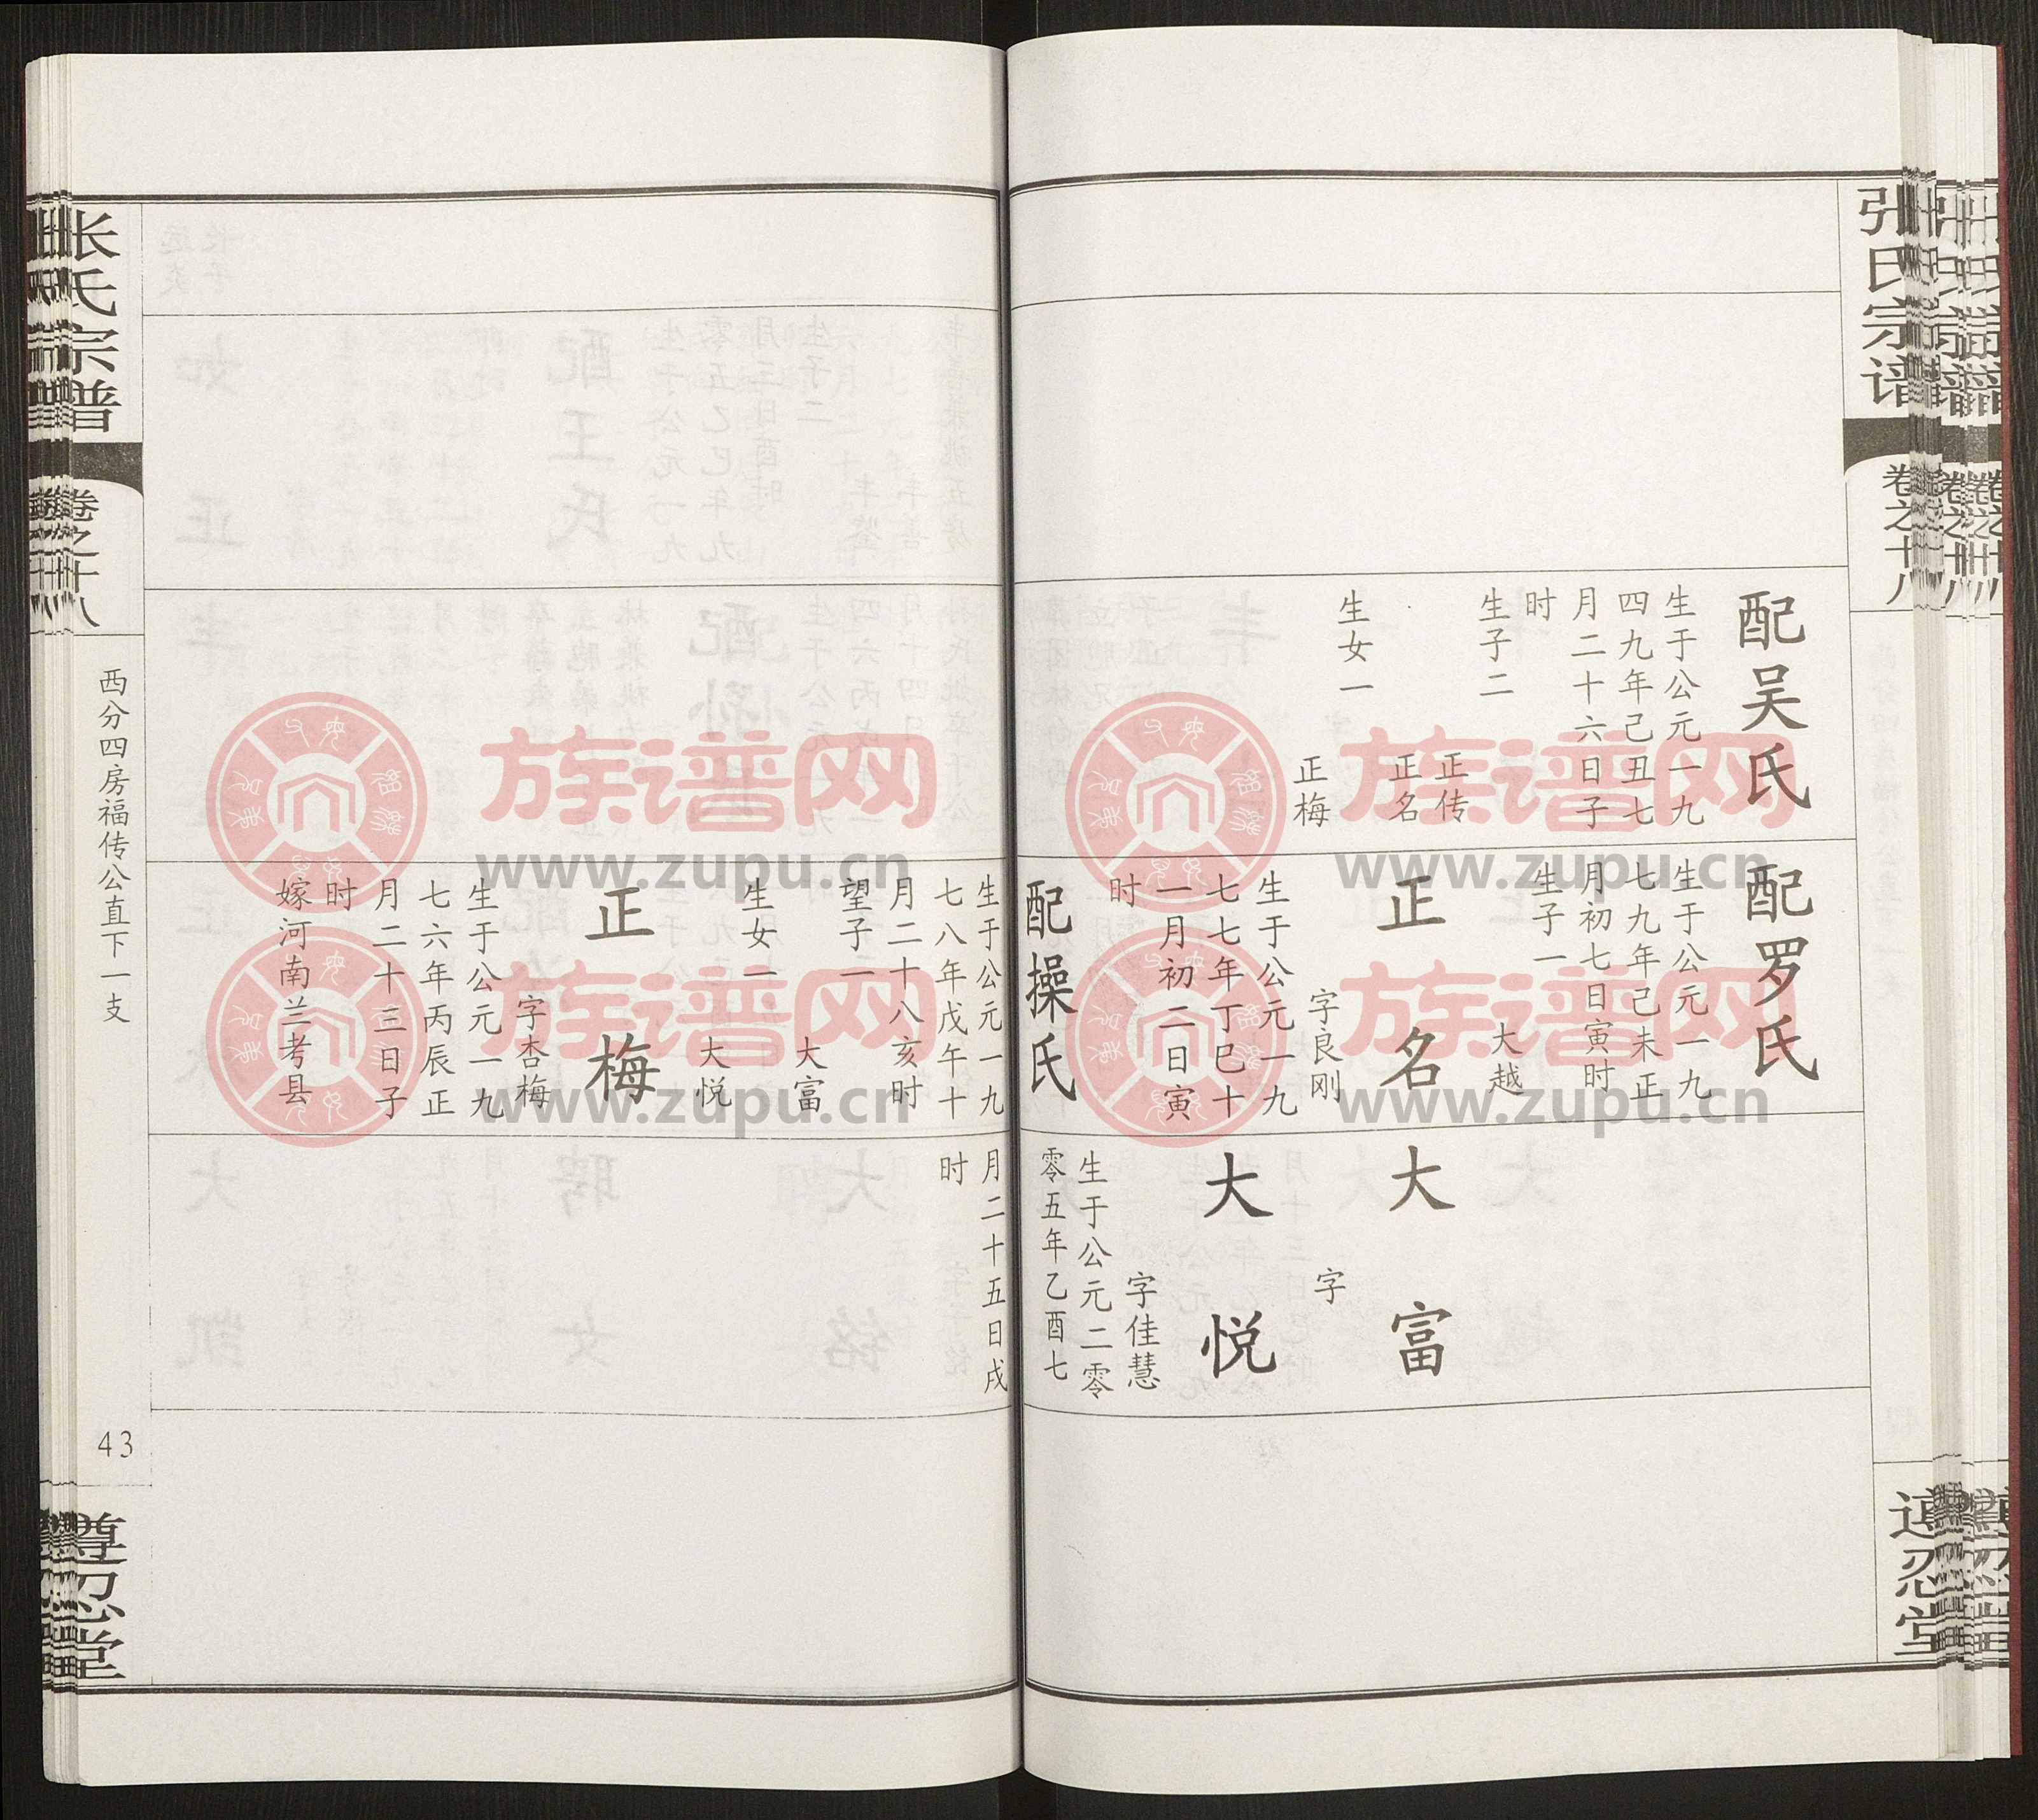 张氏宗谱
卷之十八
遵忍堂
配吴氏
生于公元一九
四九年己丑七
月二十六日子
时
生子二
正传
正名
生女一
正梅
配罗氏
生于公元一九
七九年己未正
月初七日寅时
生子一
大越
正名
字良刚
生于公元一九
七七年丁巳十
一月初二日寅
时
配操氏
大富
字
大悦
字佳慧
生于公元二零
零五年乙酉七
生于公元一九
七八年戊午十
月二十八亥时
望子一
大富
生女一
大悦
正梅
字杏梅
生于公元一九
七六年丙辰正
月二十三日子
时
嫁河南兰考县
月二十五日戌
时
张氏宗谱
卷之十八
西分四房福传公直下一支
43
遵忍堂
族谱网
www.zupu.cn
族谱网
www.zupu.cn
族谱网
www.zupu.cn
族谱网
www.zupu.cn